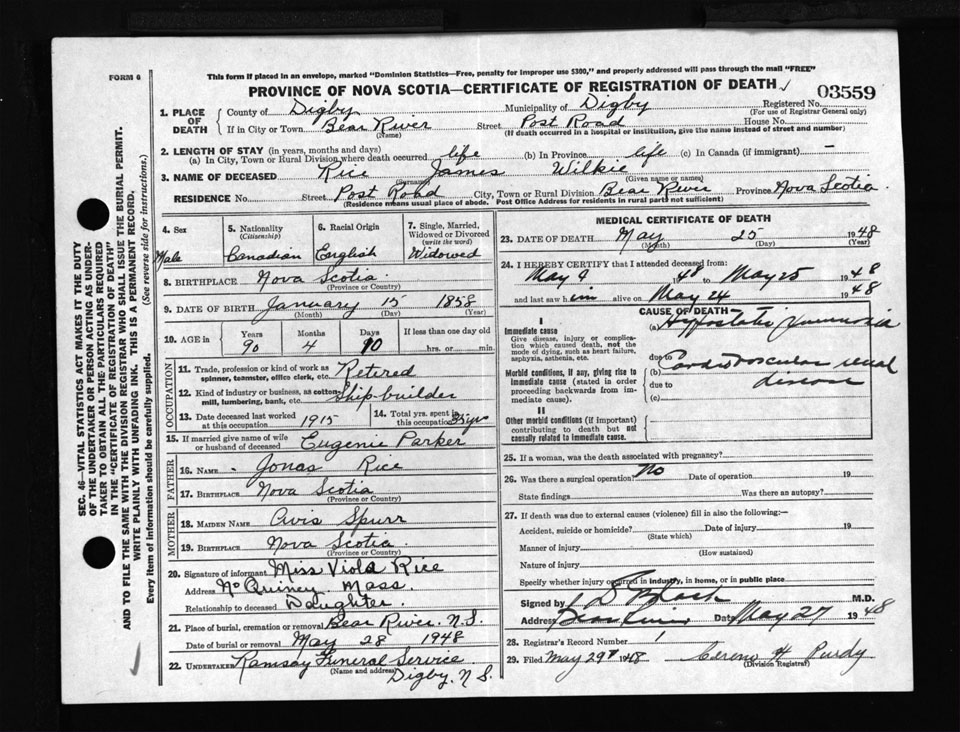 FORM 6
This form if placed in an envelope, marked "Dominion Statistics—Free, penalty for improper use $300," and properly addressed will pass through the mail "FREE"
PROVINCE OF NOVA SCOTIA—CERTIFICATE OF REGISTRATION OF DEATH
03559
1. PLACE OF DEATH County of Digby Municipality of Digby Registered No.
(For use of Registrar General only)
If in City or Town Bear River Street Post Road House No.
(Name) (If death occurred in a hospital or institution, give the name instead of street and number)
2. LENGTH OF STAY (in years, months and days)
(a) In City, Town or Rural Division where death occurred life (b) In Province life (c) In Canada (if immigrant) —
3. NAME OF DECEASED Rice James Wilkie
(Surname) (Given name or names)
RESIDENCE No. Street Post Road City, Town or Rural Division Bear River Province Nova Scotia
(Residence means usual place of abode. Post Office Address for residents in rural parts not sufficient)
4. Sex
Male
5. Nationality
(Citizenship)
Canadian
6. Racial Origin
English
7. Single, Married, Widowed or Divorced
(write the word)
Widowed
8. BIRTHPLACE Nova Scotia
(Province or Country)
9. DATE OF BIRTH January 15 1858
(Month) (Day) (Year)
10. AGE in Years Months Days If less than one day old
90 4 10 hrs. or min.
OCCUPATION
11. Trade, profession or kind of work as spinner, teamster, office clerk, etc. Retired
12. Kind of industry or business, as cotton mill, lumbering, bank, etc. Ship-builder
13. Date deceased last worked at this occupation 1915
14. Total yrs. spent in this occupation 35 yrs
15. If married give name of wife or husband of deceased Eugenie Parker
FATHER
16. NAME Jonas Rice
17. BIRTHPLACE Nova Scotia
(Province or Country)
MOTHER
18. MAIDEN NAME Avis Spurr
19. BIRTHPLACE Nova Scotia
(Province or Country)
20. Signature of informant Miss Viola Rice
Address Mass
Relationship to deceased Daughter.
21. Place of burial, cremation or removal Bear River. N.S.
Date of burial or removal May 28 1948
22. UNDERTAKER Ramsay Funeral Service
(Name and address) Digby, N.S.
MEDICAL CERTIFICATE OF DEATH
23. DATE OF DEATH May 25 1948
(Month) (Day) (Year)
24. I HEREBY CERTIFY that I attended deceased from:
May 9 48 to May 25 1948
and last saw him alive on May 24 1948
CAUSE OF DEATH
I
Immediate cause
Give disease, injury or complication which caused death, not the mode of dying, such as heart failure, asphyxia, asthenia, etc.
(a) Hypostatic Pneumonia
due to
Morbid conditions, if any, giving rise to immediate cause (stated in order proceeding backwards from immediate cause)
(b) Cardio Vascular renal
due to disease
(c)
II
Other morbid conditions (if important) contributing to death but not causally related to immediate cause.
25. If a woman, was the death associated with pregnancy?
26. Was there a surgical operation? No Date of operation 19
State findings Was there an autopsy?
27. If death was due to external causes (violence) fill in also the following:—
Accident, suicide or homicide? Date of injury 19
(State which)
Manner of injury
(How sustained)
Nature of injury
Specify whether injury occurred in industry, in home, or in public place
Signed by M.D.
Address Bear River Date May 27 1948
28. Registrar's Record Number 1
29. Filed May 29 1948 Cereno H Purdy
(Division Registrar)
SEC. 46—VITAL STATISTICS ACT MAKES IT THE DUTY
OF THE UNDERTAKER OR PERSON ACTING AS UNDERTAKER TO OBTAIN ALL THE PARTICULARS REQUIRED
IN THE "CERTIFICATE OF REGISTRATION OF DEATH"
AND TO FILE THE SAME WITH THE DIVISION REGISTRAR WHO SHALL ISSUE THE BURIAL PERMIT.
WRITE PLAINLY WITH UNFADING INK. THIS IS A PERMANENT RECORD.
Every item of information should be carefully supplied. (See reverse side for instructions.)